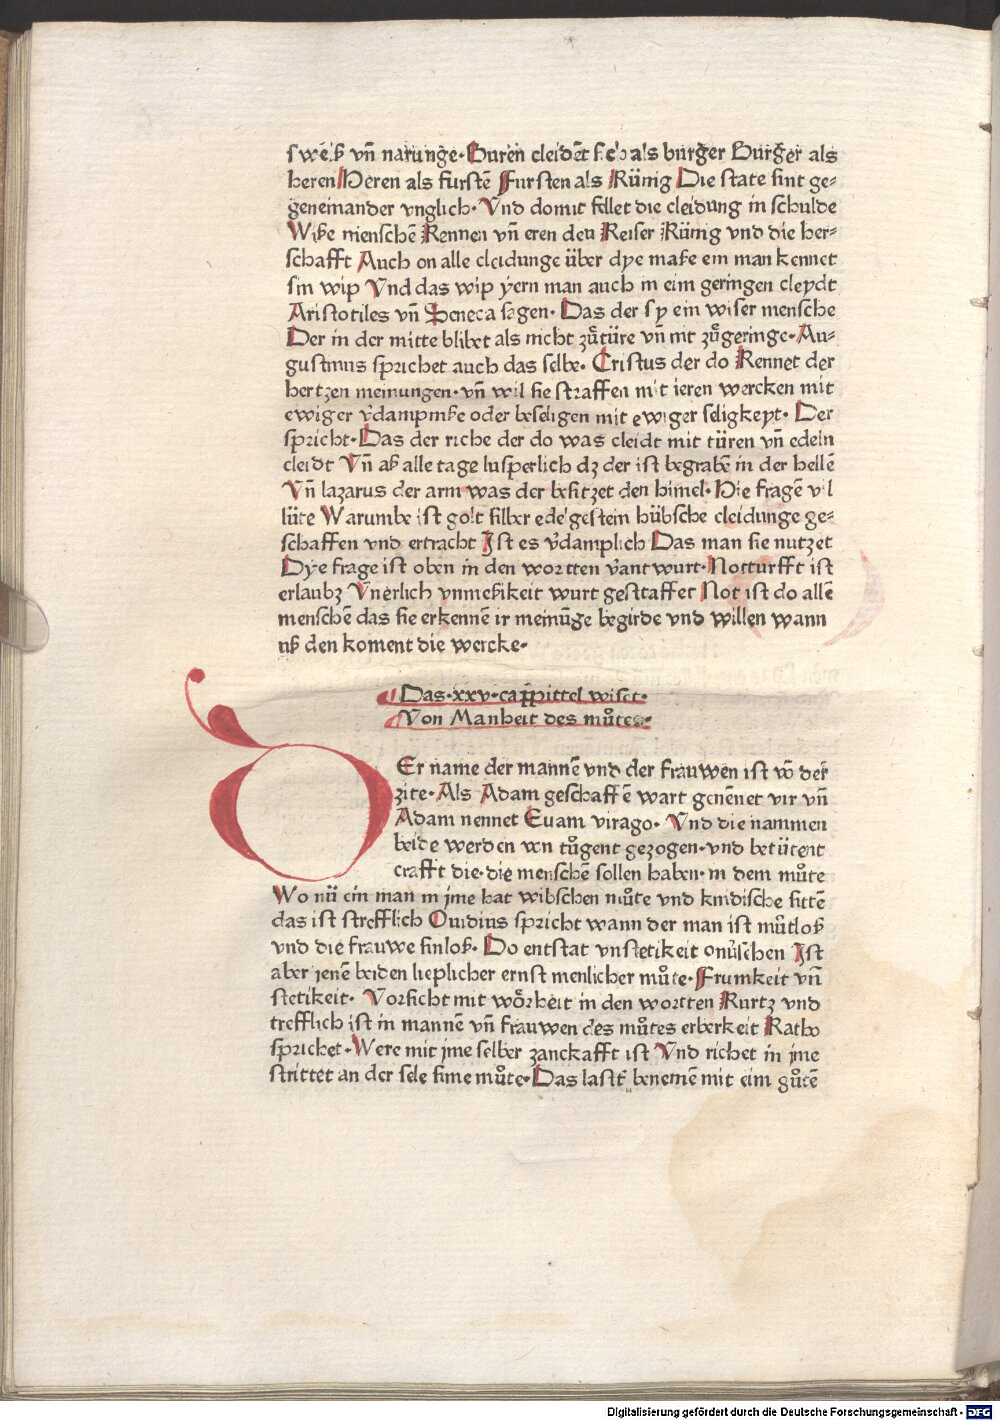 swēıß vñ narunge. Buren cleidēt sich als burger Burger als
heren Heren als furstē Fursten als Künig Die state sint ge⸗
geneinander vnglich. Vnd domit fellet die cleidung in schulde
Wiße menschē Kennen vñ eren den Keiser Künig vnd die her⸗
schafft Auch on alle cleidunge über dye maße ein man kennet
sin wip Vnd das wip yern man auch in eim geringen cleydt
Aristotiles vñ Seneca sagen. Das der sy ein wiser mensche
Der in der mitte blibet als nicht zůtüre vñ nit zůgeringe. Au⸗
gustinus sprichet auch das selbe. Cristus der do Kennet der
hertzen meinungen. vñ wil sie straffen mit ieren wercken mit
ewiger v̄dampniße oder beseligen mit ewiger seligkeyt. Der
spricht. Das der riche der do was cleidt mit türen vñ edeln
cleidt Vñ aß alle tage lusperlich dz der ist begrabē in der hellē
Vñ lazarus der arm was der besitzet den himel. Hie fragē vil
lüte Warumbe ist golt silber edelgestein hübsche cleidunge ge⸗
schaffen vnd ertracht Ist es v̄damplich Das man sie nutzet
Dye frage ist oben in den wortten v̄antwurt. Notturfft ist
erlaubz Vnerlich vnmeßikeit wurt gestraffet Not ist do allē
menschē das sie erkennē ir meinūge begirde vnd willen wann
uß den koment die wercke.
Das .xxv. cappittel wiset.
Von Manheit des můtes.
Er name der mannē vnd der frauwen ist vō der
zite. Als Adam geschaffē wart genēnet vir vñ
Adam nennet Euam virago. Vnd die nammen
beide werden von tůgent gezogen. vnd betütent
crafft die. die menschē sollen haben. in dem můte
Wo nü ein man in jme hat wibschen můte vnd kindische sittē
das ist strefflich Ouidius spricht wann der man ist můtloß
vnd die frauwe sinloß. Do entstat vnstetikeit onůschen Ist
aber jenē beiden lieplicher ernst menlicher můte. Frumkeit vñ
stetikeit. Vorsicht mit worheit in den wortten Kurtz vnd
trefflich ist in mannē vñ frauwen des můtes erberkeit Katho
sprichet. Were mit jme selber zanckafft ist Vnd richet in jme
strittet an der sele sime můte. Das last benemē mit eim gůtē
Digitalisierung gefördert durch die Deutsche Forschungsgemeinschaft - DFG